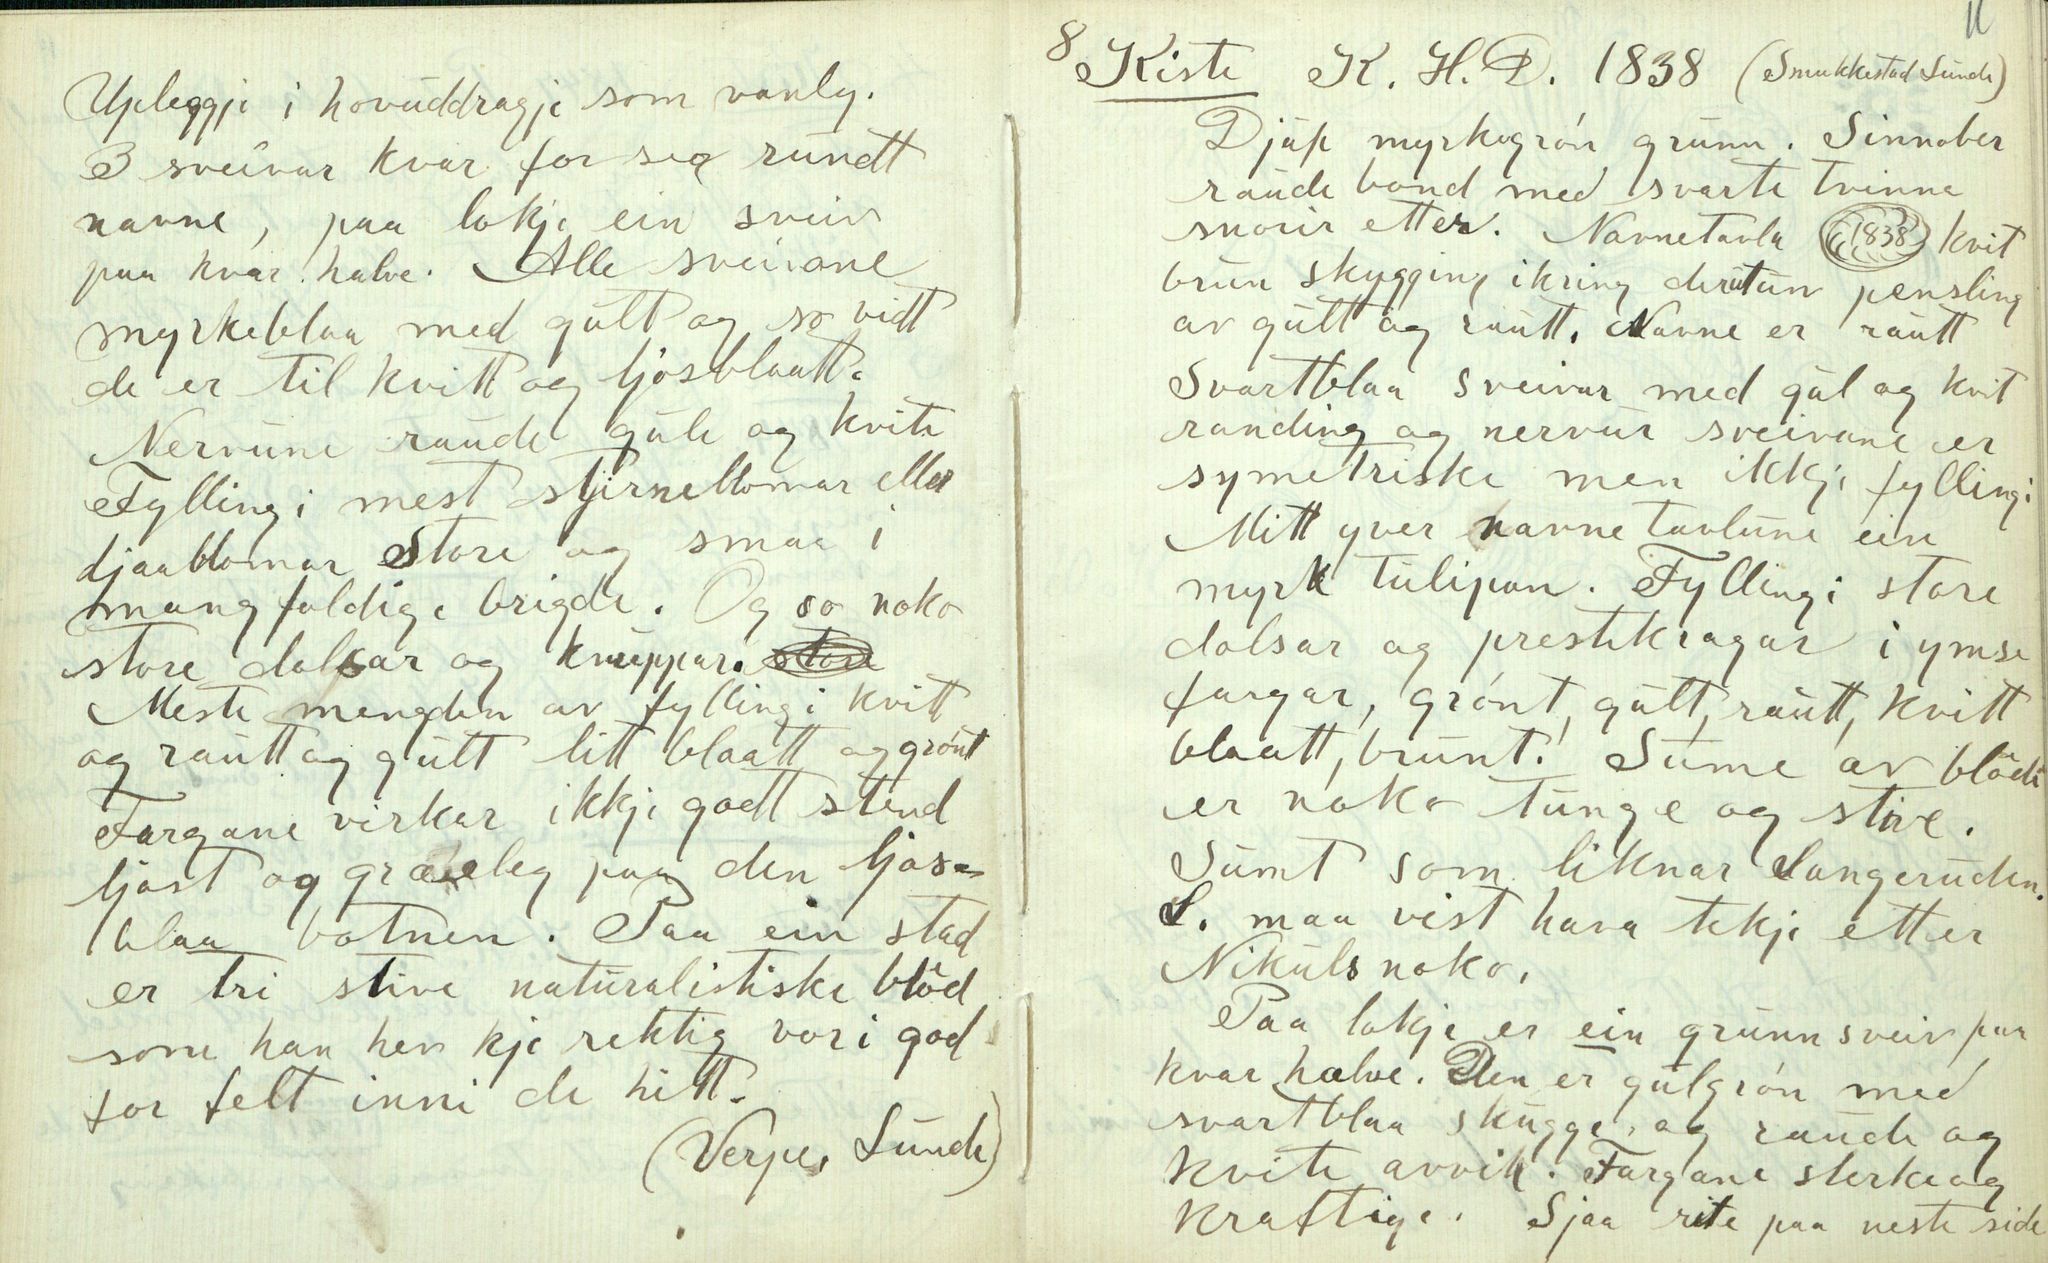 Upleggje i hovuddragje som vanleg.
3 sveivar kvar for seg rundt
navne, paa lokje ein sveiv
paa kvar halve. Alle sveivane
myrkeblaa med gult og so vidt
de er til kvitt og ljosblaatt.
Nervune raude gule og kvite
Fyllingi mest stjerneblomar eller
ljaablomar store og smaa i
mangfaldige brigde. Og so noko
store dolsar og knuppar. store
Meste mengden av fyllingi kvitt
og rautt og gult litt blaatt og grønt
Fargane virkar ikkje godt stend
ljost og græeleg paa den ljos-
blaa botnen. Paa ein stad
er tri stive naturalistiske blöd
som han hev kje rektig vori god
for felt inni de hitt.
(Verpe, Lunde)
11
8 Kiste K. H. D. 1838 (Smukkestad Lunde)
Djup myrkegrøn grunn. Sinnober
raude band med svarte tvinna
snorir etter. Navnetavla 1838 kvit
brun skygging ikring derutun pensling
av gult og rautt. Navne er rautt
Svartblaa sveivar med gul og kvit
randing og nervur sveivane er
symetriske men ikkje fyllingi
Mitt yver navnetavlune ein
myrk tulipan. Fyllingi store
dolsar og prestekragar i ymse
fargar, grønt, gult, rautt, kvitt
blaatt, brunt. Sume av blödi
er noko tunge og stive.
Sumt som liknar Langeruden.
L. maa vist hava tekje etter
Nikuls noko.
Paa lokje er ein grunnsveiv paa
kvar halve. Den er gulgrøn med
svartblaa skugge, og raude og
kvite avvik. Fargane sterke og
kraftige. Sjaa rite paa neste side